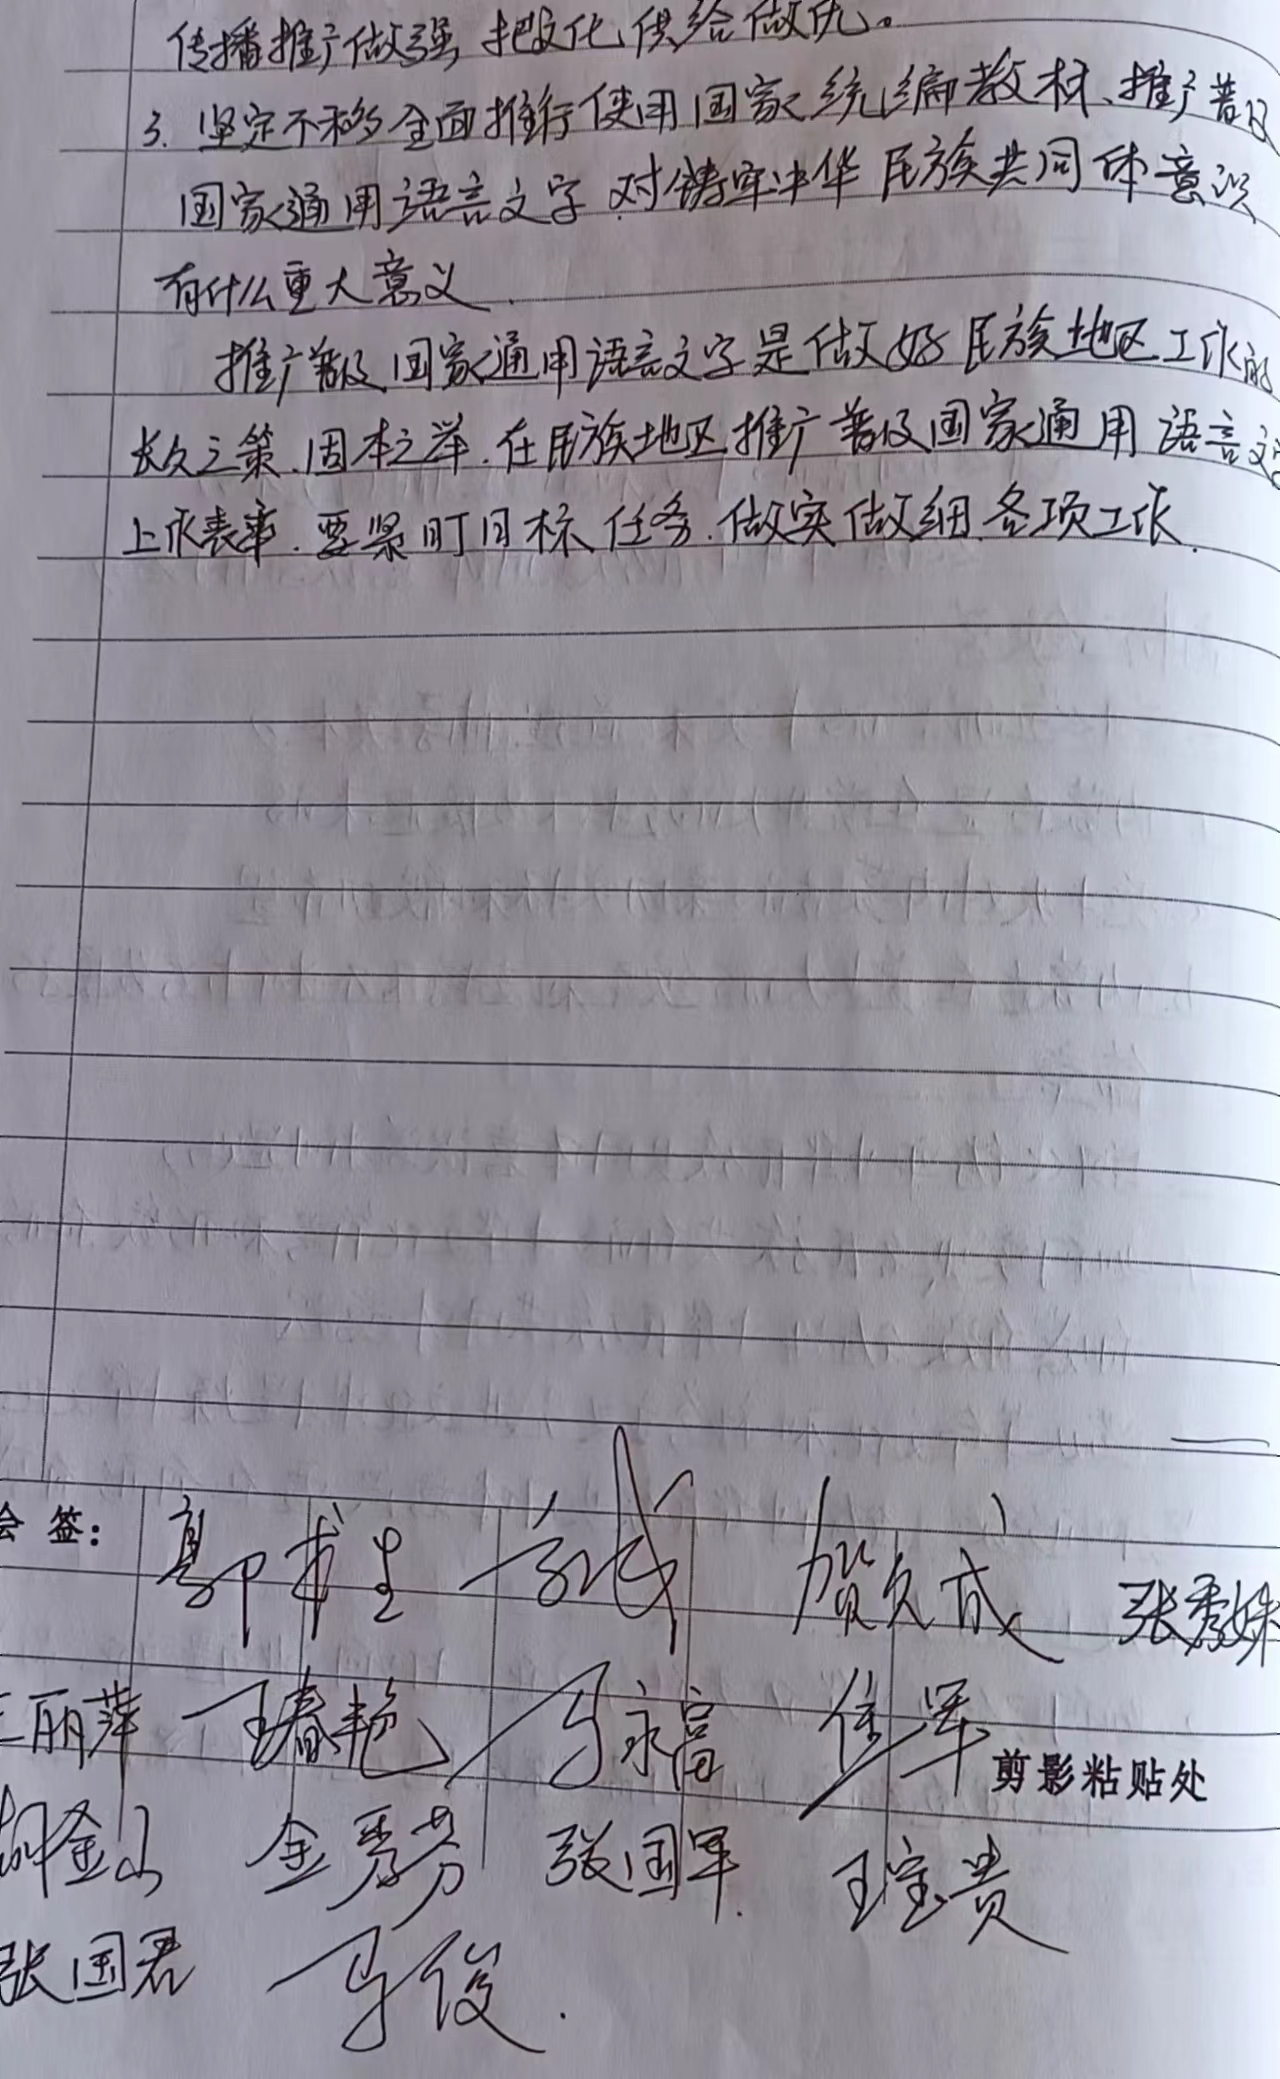 传播推广做强，把文化供给做优。
3. 坚定不移全面推行使用国家统编教材、推广普及
国家通用语言文字，对铸牢中华民族共同体意识
有什么重大意义.
推广普及国家通用语言文字是做好民族地区工作的
长久之策、固本之举.在民族地区推广普及国家通用语言文字
上作表率.要紧盯目标任务.做实做细各项工作.
会 签：
贺久成 张秀姝
王丽萍 王春艳 马永富
剪影粘贴处
胡金山 金秀芳 张国军. 王宝贵
张国君 马俊.